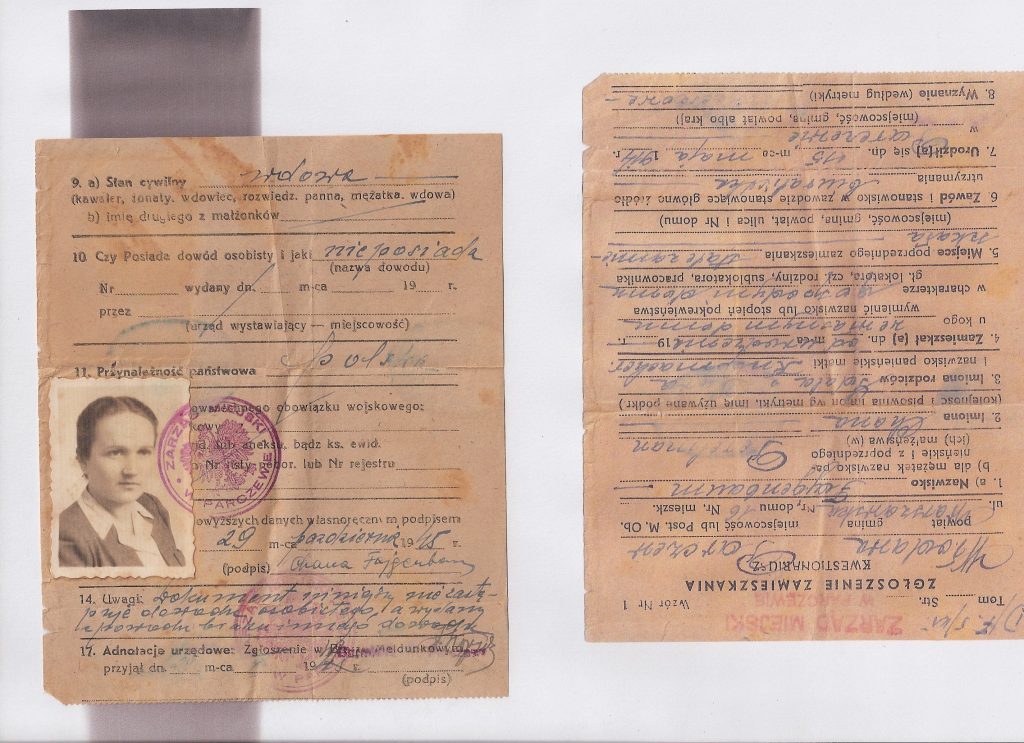 9. a) Stan cywilny wdowa
(kawaler, żonaty, wdowiec, rozwiedz. panna, mężatka, wdowa)
b) imię drugiego z małżonków
10. Czy Posiada dowód osobisty i jaki nie posiada
(nazwa dowodu)
Nr wydany dn. m-ca 19 r.
przez
(urząd wystawiający — miejscowość)
11. Przynależność państwowa Polska
owszechnego obowiązku wojskowego:
kowy
id. lub aneksu, bądz ks. ewid.
p Nr listy pobor. lub Nr rejestru
ZARZĄD MIEJSKI
W PARCZEWIE
owyższych danych własnoręcznym podpisem
29 m-ca października 1945 r.
(podpis) Chana Fajgenbaum
14. Uwagi: Dokument niniejszy nie zastę-
puje dowodu osobistego, a wydany
z powodu braku innego dowodu
17. Adnotacje urzędowe: Zgłoszenie w Biurze meldunkowym
przyjął dn. m-ca 19 r.
(podpis)
ZARZĄD MIEJSKI
W PARCZEWIE
Tom Str. Wzór Nr 1
ZGŁOSZENIE ZAMIESZKANIA
KWESTIONARIUSZ
Włodawa Parczew
powiat gmina miejscowość lub Post. M. Ob.
ul. Warszawska Nr. domu 16 Nr. mieszk.
1. a) Nazwisko Fajgenbaum
b) dla mężatek nazwisko pa-
nieńskie i z poprzedniego
(ich) małżeństwa (w)
2. Imiona Chana
(kolejność i pisownia imion wg metryki, imię używane podkr.)
3. Imiona rodziców
i nazwisko panieńskie matki
4. Zamieszkał (a) dn. od urodzenia m-ca 19 r.
u kogo we własnym domu
wymienić nazwisko lub stopień pokrewieństwa
w charakterze
gł. lokatora, czł. rodziny, sublokatora, pracownika
5. Miejsce poprzedniego zamieszkania stale zamie-
szkała
(miejscowość, gmina, powiat, ulica i Nr domu)
6. Zawód i stanowisko w zawodzie stanowiące główne źródło
utrzymania
7. Urodził(a) się dn. 15 m-ca maja 1914 r.
w Parczewie
(miejscowość, gmina, powiat albo kraj)
8. Wyznanie (według metryki)